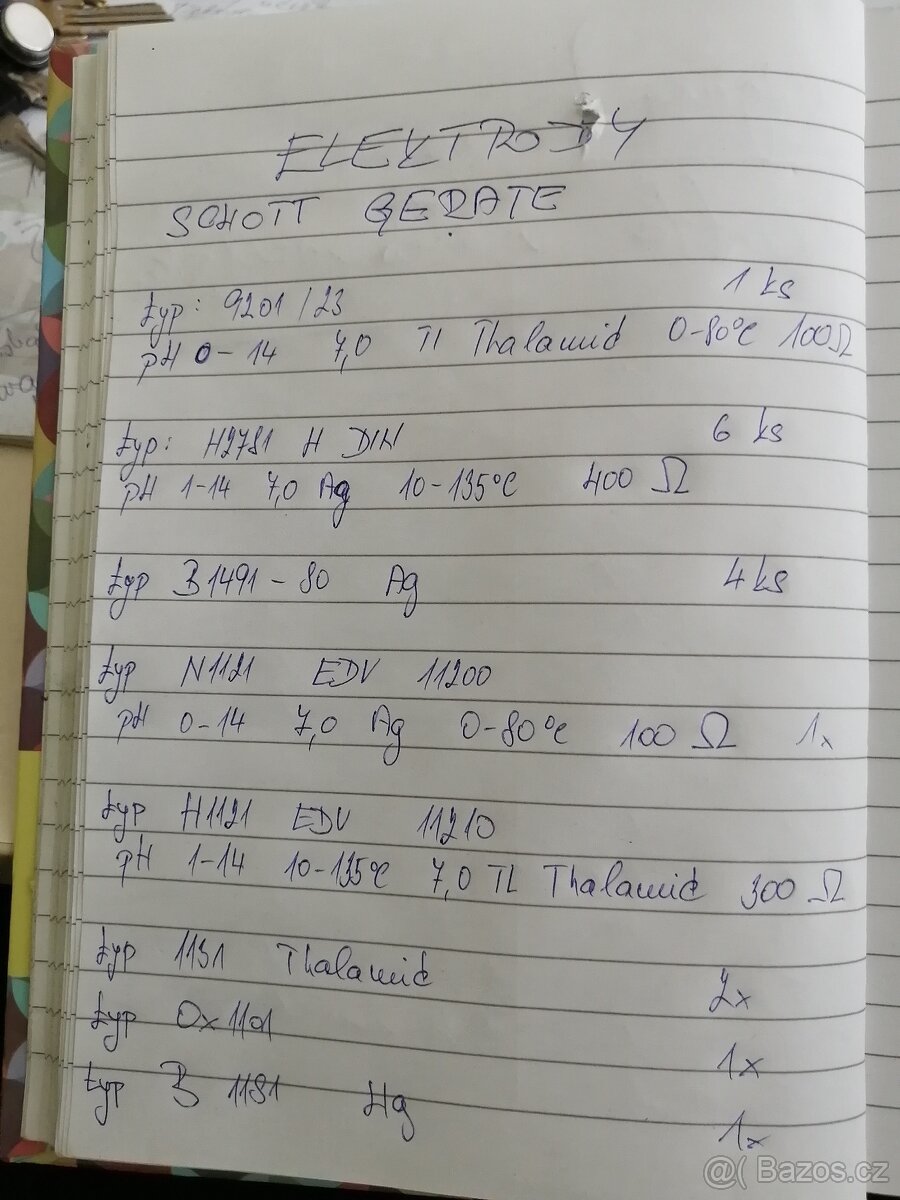 ELEKTRODY
SCHOTT GERATE
typ: 9201/23 1 ks
pH 0-14 7,0 Tl Thalamid 0-80°C 100Ω
typ: H2781 H DIN 6 ks
pH 1-14 7,0 Ag 10-135°C 400 Ω
typ B1491-80 Ag 4 ks
typ N1121 EDV 11200
pH 0-14 7,0 Ag 0-80°C 100 Ω 1x
typ H1121 EDV 11210
pH 1-14 10-135°C 7,0 TL Thalamid 300 Ω
typ 1131 Thalamid 2x
typ Ox 1101 1x
typ B 1181 Hg 1x
@( Bazos.cz